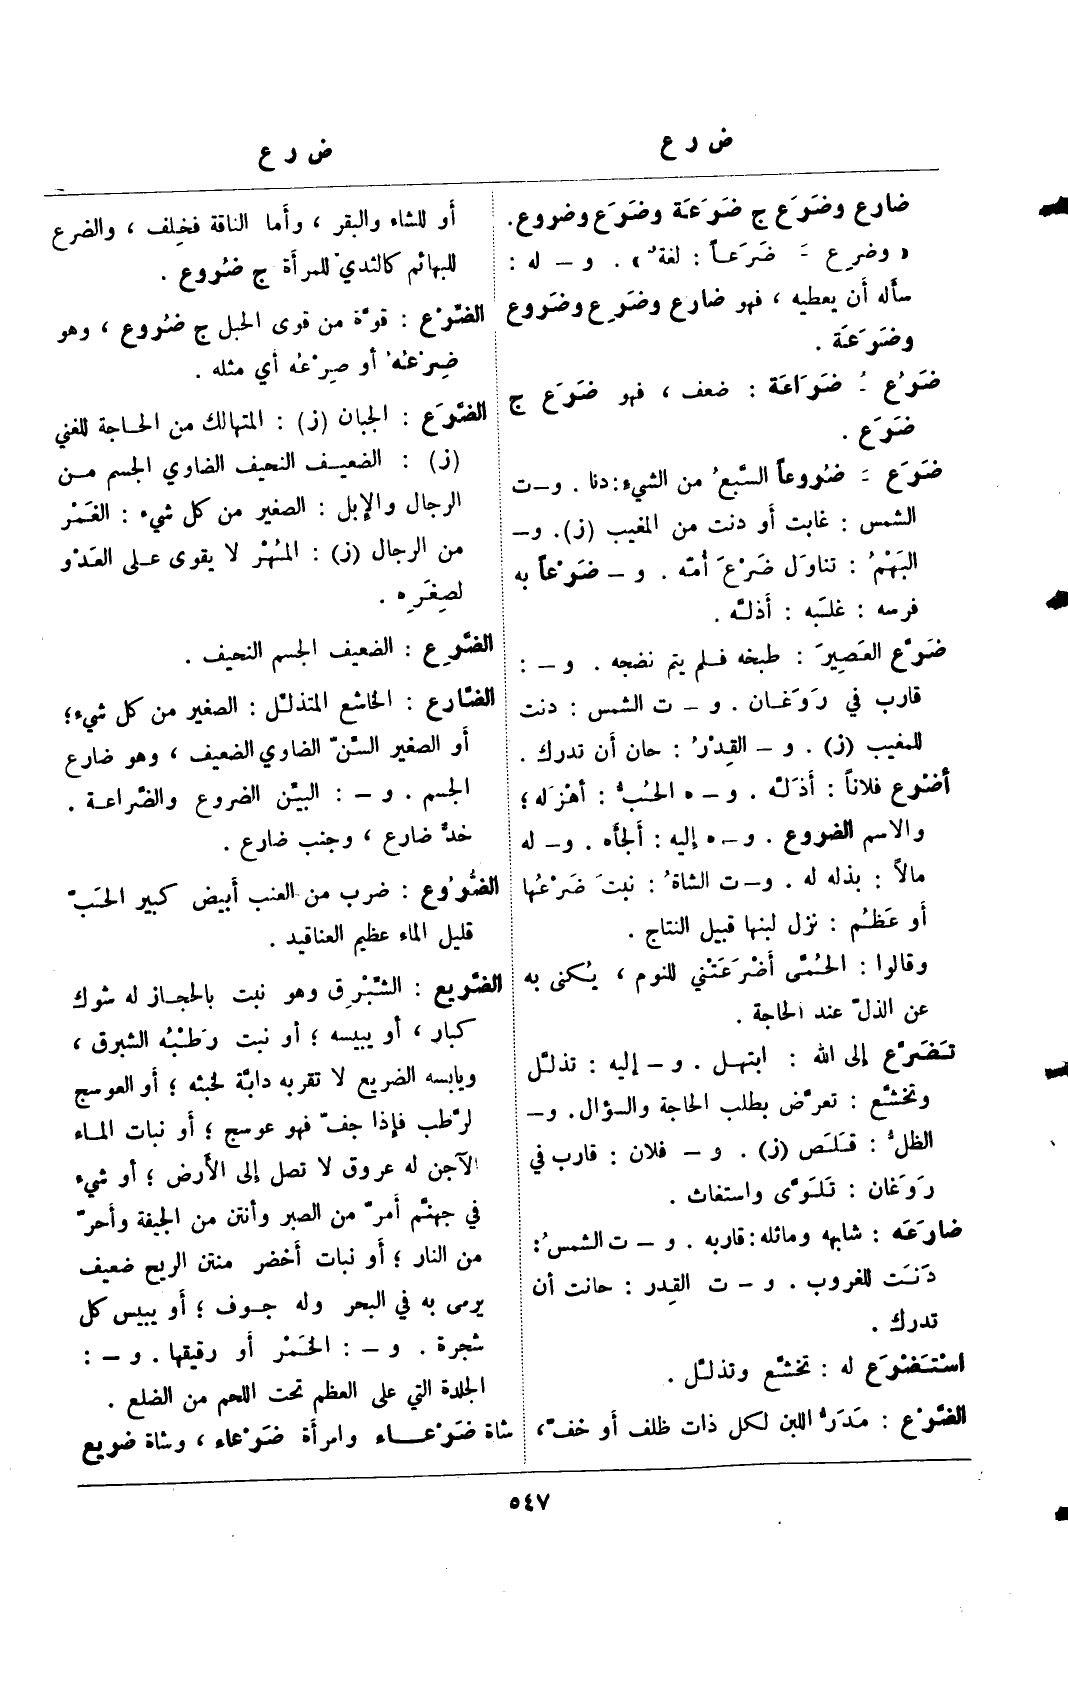 ض ر ع
ض ر ع
ضارع وضَرَع ج ضَرَعَة وضَرَع وضروع.
« وضرِع ـَ ضَرَعاً : لغة » . و – له :
سأله أن يعطيه ، فهو ضارع وضَرِع وضَروع
وضَرَعَة .
ضَرُع ـُ ضَرَاعَة : ضعف ، فهو ضَرَع ج
ضَرَع .
ضَرَع ـَ ضُروعاً السَّبعُ من الشيء : دنا . و–ت
الشمس : غابت أو دنت من المغيب (ز). و–
البَهْمُ : تناوَل ضَرْعَ أمّه . و – ضَرْعاً به
فرسه : غلبَه : أذلّه .
ضَرَّع العَصِيرَ : طبخه فلم يتم نضجه . و – :
قارب في رَوَغان . و – ت الشمس : دنت
للمغيب (ز) . و – القِدْرُ : حان أن تدرك .
أضْرع فلاناً : أذَلّه . و – ه الحُبُّ : أهْزَله ؛
والاسم الضروع . و– ه إليه : ألجأه . و– له
مالاً : بذله له . و–ت الشاةُ : نبتَ ضَرْعُها
أو عَظُم : نزل لبنها قبيل النتاج .
وقالوا : الحُمَّى أضْرَعَتْني للنوم ، يُكنى به
عن الذلّ عند الحاجة .
تَضَرَّع إلى الله : ابتهل . و – إليه : تذلّل
وتخشّع : تعرّض بطلب الحاجة والسؤال. و–
الظلُّ : قَلَص (ز) . و – فلان : قارب في
رَوَغان : تَلَوَّى واستغاث .
ضارَعَه : شابهه وماثله : قاربه . و – ت الشمسُ :
دَنَت للغروب . و – ت القِدر : حانت أن
تدرك .
اسْتَضْرَع له : تخشّع وتذلّل .
الضَّرْع : مَدَرُّ اللبن لكل ذات ظلف أو خفّ ،
أو للشاء والبقر ، وأما الناقة فخِلف ، والضرع
للبهائم كالثدي للمرأة ج ضُروع .
الضَّرْع : قوّة من قوى الحبل ج ضُروع ، وهو
ضِرْعُهُ أو صِرْعُه أي مثله .
الضَّرَع : الجبان (ز) : المتهالك من الحاجة للغني
(ز) : الضعيف النحيف الضاوي الجسم من
الرجال والإبل : الصغير من كل شيء : الغَمْر
من الرجال (ز) : المُهْر لا يقوى على العَدْو
لصِغَرِه .
الضَّرِع : الضعيف الجسم النحيف .
الضَّارع : الخاشع المتذلّل : الصغير من كل شيء ؛
أو الصغير السّنّ الضاوي الضعيف ، وهو ضارع
الجسم . و – : البيّن الضروع والضَّراعة .
خدٌّ ضارع ، وجنب ضارع .
الضُّرُوع : ضرب من العنب أبيض كبير الحَبّ
قليل الماء عظيم العناقيد .
الضَّريع : الشّبْرِق وهو نبت بالحجاز له شوك
كبار ، أو يبيسه ؛ أو نبت رَطْبُه الشبرق ،
ويابسه الضريع لا تقربه دابّة لخبثه ؛ أو العوسج
لرّطب فإذا جفّ فهو عوسج ؛ أو نبات الماء
الآجن له عروق لا تصل إلى الأرض ؛ أو شيء
في جهنّم أمرّ من الصبر وأنتن من الجيفة وأحرّ
من النار ؛ أو نبات أخضر منتن الريح ضعيف
يرمى به في البحر وله جوف ؛ أو يبيس كل
شجرة . و – : الخَمْر أو رقيقها . و – :
الجلدة التي على العظم تحت اللحم من الضلع .
شاة ضَرْعاء وامرأة ضَرْعاء ، وشاة ضَريع
٥٤٧